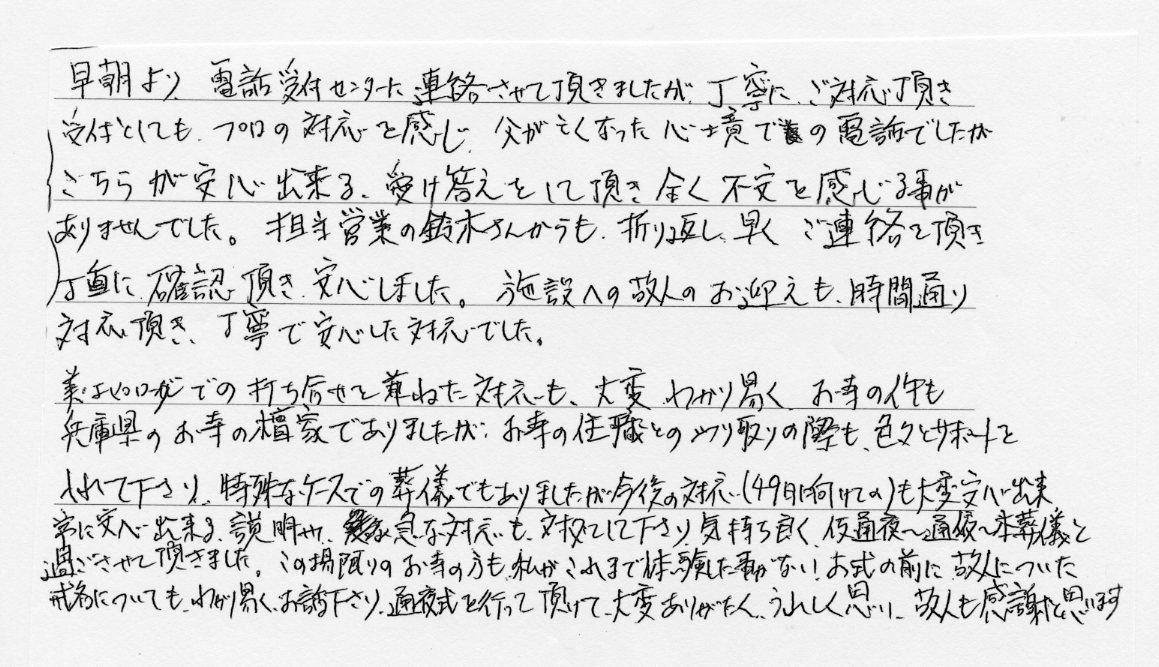 早朝より、電話受付センターに連絡させて頂きましたが、丁寧に、ご対応頂き
受付としても、プロの対応を感じ、父が亡くなった心境での電話でしたが
こちらが安心出来る、受け答えをして頂き全く不安を感じる事が
ありませんでした。担当営業の鈴木さんからも、折り返し、早く ご連絡を頂き
丁寧に、確認頂き、安心しました。施設への故人のお迎えも、時間通り
対応頂き、丁寧で安心した対応でした。
での打ち合せを兼ねた対応も、大変 わかり易く、お寺の件も
兵庫県のお寺の檀家でありましたが、お寺の住職とのやり取りの際も、色々とサポートを
して下さり、特殊なケースでの葬儀でもありましたが今後の対応(49日に向けての)も大変安心出来
常に安心出来る、説明や、急な対応も、対処して下さり、気持ち良く、仮通夜〜通夜〜本葬儀と
過ごさせて頂きました。この場限りのお寺の方も、私がこれまで体験した事がない、お式の前に、故人についた
戒名についても、わかり易く、お話下さり、通夜式を行って頂けて、大変ありがたく、うれしく思い、故人も感謝と思います